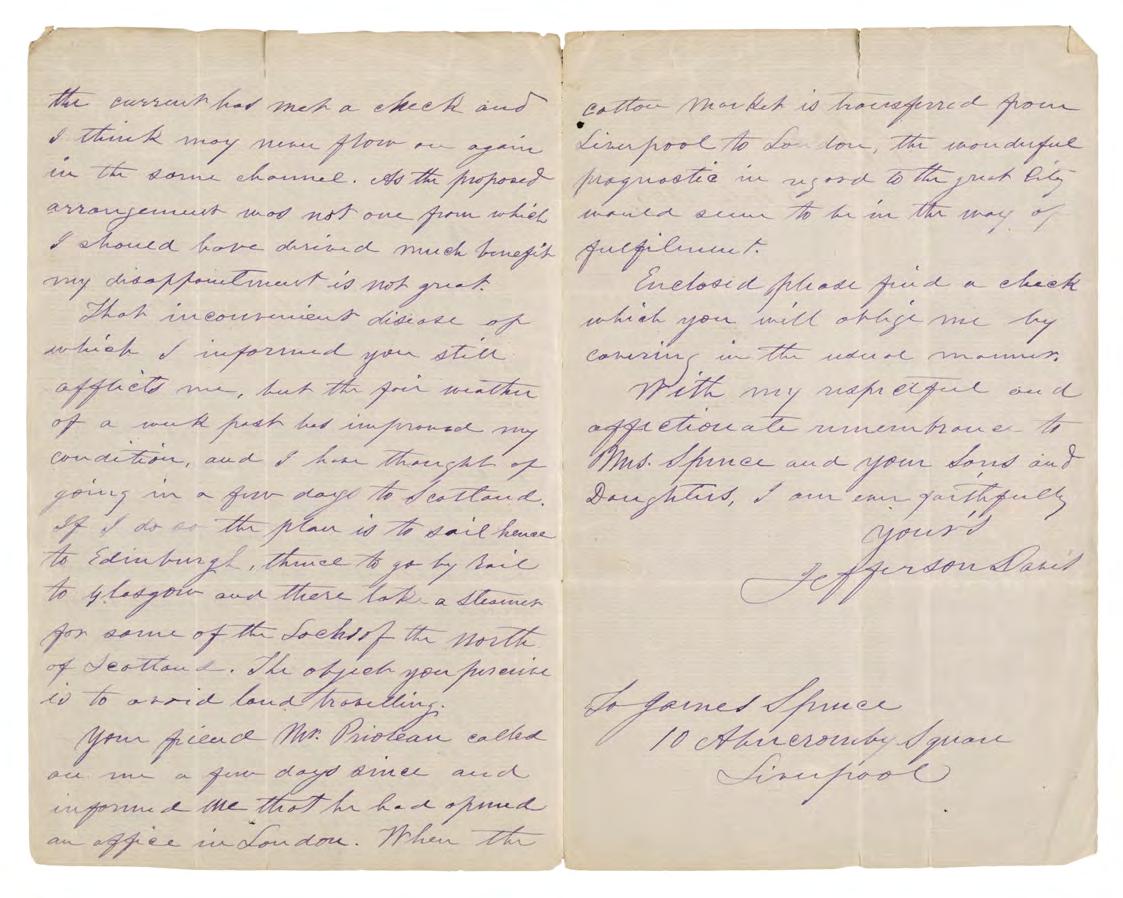 the current has met a check and
I think may never flow on again
in the same channel. As the proposed
arrangement was not one from which
I should have derived much benefit
my disappointment is not great.
That inconvenient disease of
which I informed you still
afflicts me, but the fair weather
of a week past has improved my
condition, and I have thought of
going in a few days to Scotland.
If I do so the plan is to sail hence
to Edinburgh, thence to go by rail
to Glasgow and there take a steamer
for some of the Lochs of the north
of Scotland. The object you perceive
is to avoid land travelling.
Your friend Mr. Prioleau called
on me a few days since and
informed me that he had opened
an office in London. When the
cotton market is transferred from
Liverpool to London, the wonderful
prognostic in regard to the great City
would seem to be in the way of
fulfilment.
Enclosed please find a check
which you will oblige me by
covering in the usual manner.
With my respectful and
affectionate remembrance to
Mrs. Spence and your Sons and
Daughters, I am ever faithfully
yours
Jefferson Davis
To James Spence
10 Abercromby Square
Liverpool